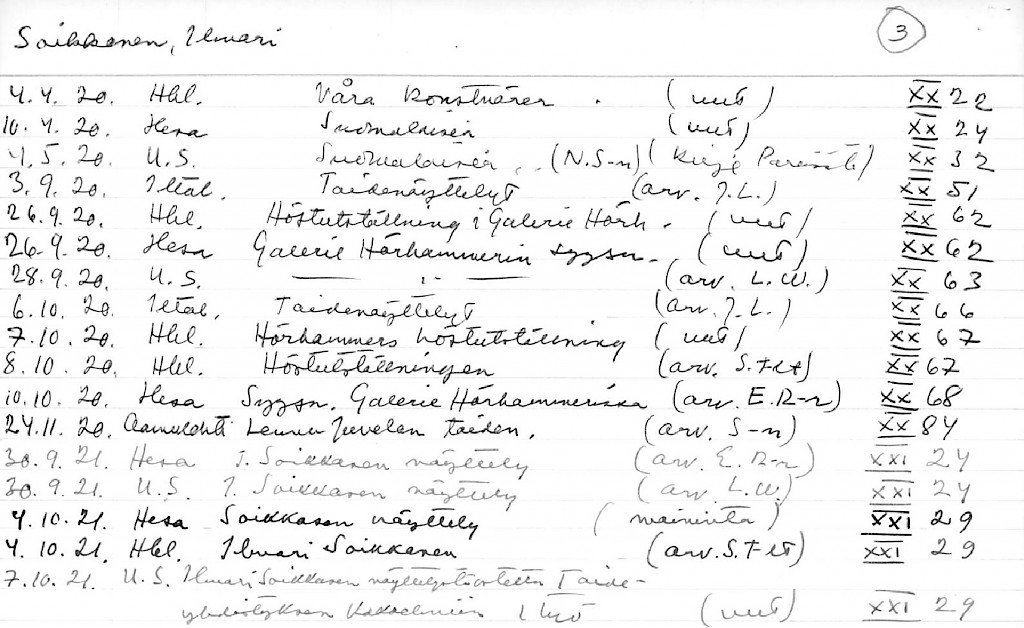 Soikkanen, Ilmari 3
4.4.20. Hbl. Våra konstnärer . (uut) XX 22
10.4.20. Hesa Suomalaisen (uut) XX 24
4.5.20. U.S. Suomalainen .. (N.S-n) (kirje Pariisista) XX 32
3.9.20. Iltal. Taidenäyttelyt (arv. J.L.) XX 51
26.9.20. Hbl. Höstutställning i Galerie Hörh. (uut) XX 62
26.9.20. Hesa Galerie Hörhammerin syysn. (uut) XX 62
28.9.20. U.S. —— " —— (arv. L.W.) XX 63
6.10.20. Iltal. Taidenäyttelyt (arv. J.L.) XX 66
7.10.20. Hbl. Hörhammers höstutställning (uut) XX 67
8.10.20. Hbl. Höstutställningen (arv. S.Tlt) XX 67
10.10.20. Hesa Syysn. Galerie Hörhammerissa (arv. E.R-r) XX 68
24.11.20. Aamulehti Leuvu Juvelan taiden. (arv. S-n) XX 84
30.9.21. Hesa I. Soikkasen näyttely (arv. E.R-r) XXI 24
30.9.21. U.S. I. Soikkasen näyttely (arv. L.W.) XXI 24
4.10.21. Hesa Soikkasen näyttely (maininta) XXI 29
4.10.21. Hbl. Ilmari Soikkanen (arv. S.Tlt) XXI 29
7.10.21. U.S. Ilmari Soikkasen näyttelystä ostettu Taide-
yhdistyksen kokoelmiin 1 työ (uut) XXI 29